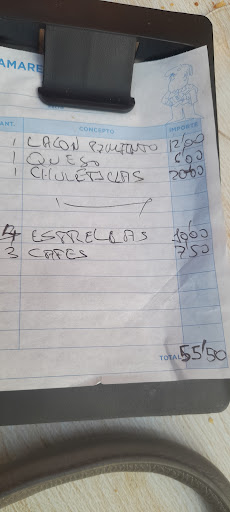 AMARE
ANT. CONCEPTO IMPORTE
1 LACON PIMIENTO 12,00
1 QUESO 6,00
1 CHULETILLAS 20,00
4 ESTRELLAS 10,00
3 CAFES 7,50
TOTAL 55,50